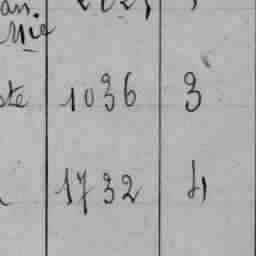 an.
Mie
ste 1036 3
1732 4